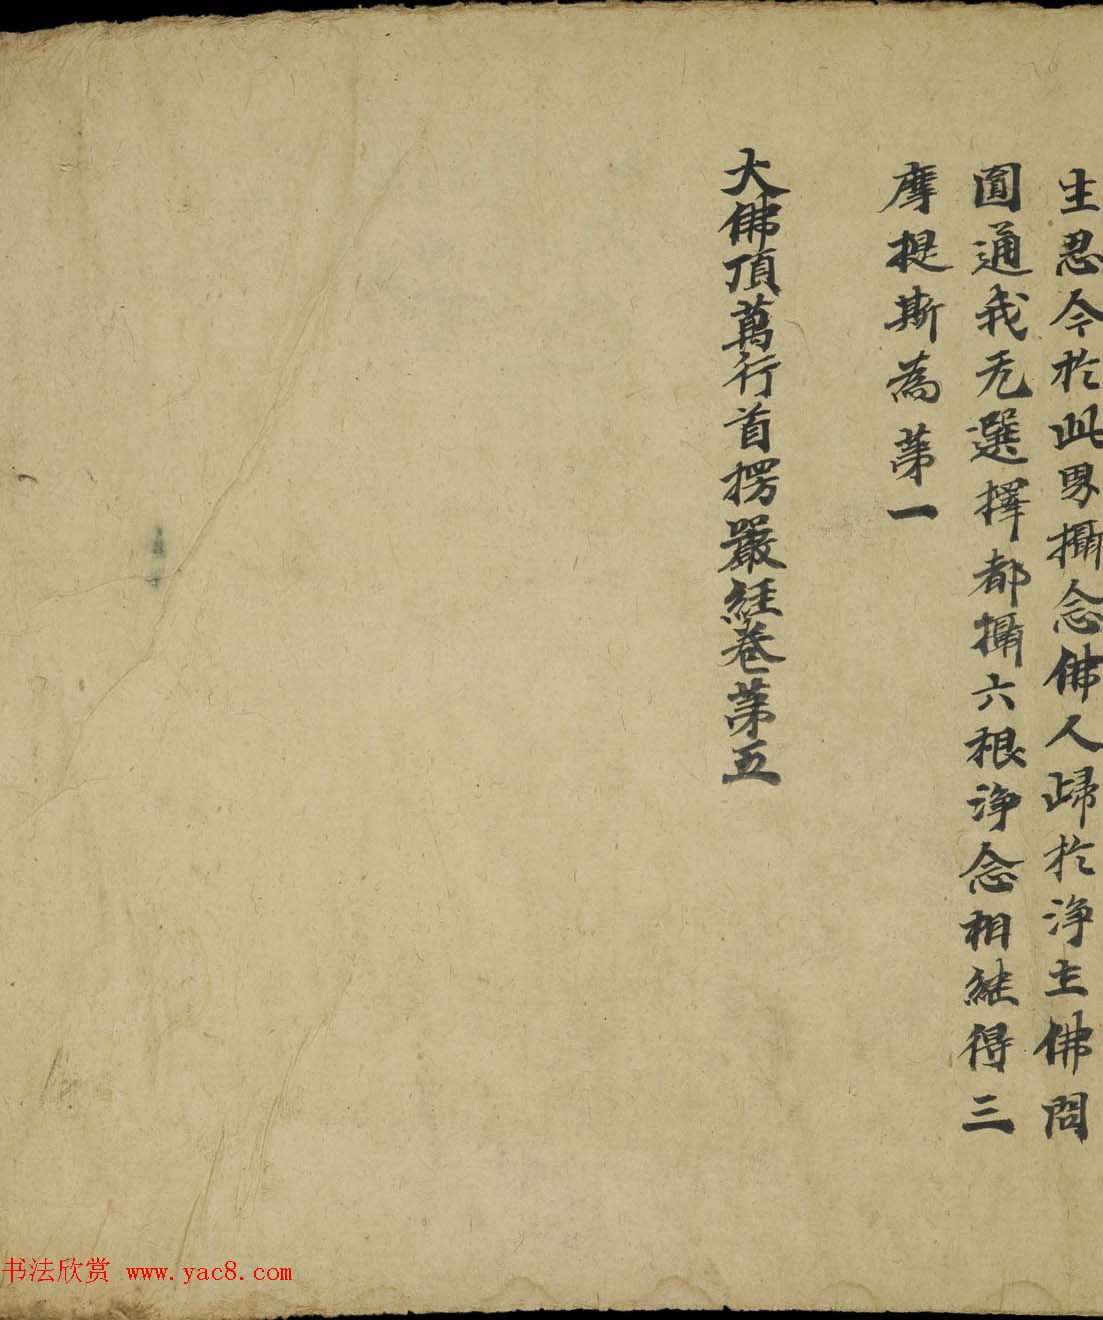 生忍今於此界攝念佛人歸於净土佛問
圎通我无選擇都攝六根净念相継得三
摩提斯為苐一
大佛頂萬行首楞嚴經卷苐五
书法欣赏 www.yac8.com